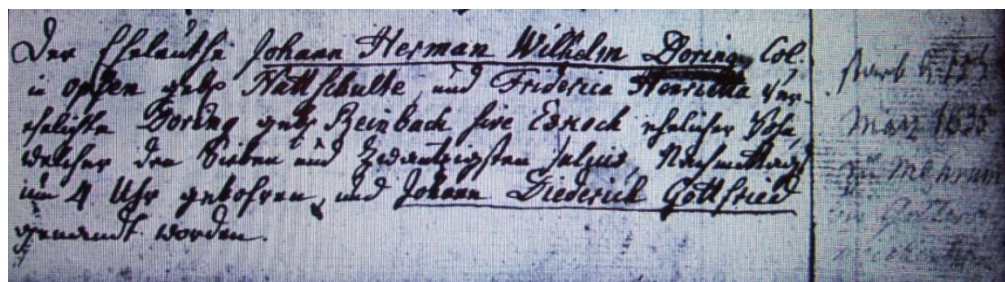 Der Eheleuthe Johann Herman Wilhelm Doring Col.
in opsen geb. Nattschulte, und Friderica Henrietta Ver-
ehelichte Doring geb. Reinbach sive Esnoch ehelicher Sohn
welcher den Sieben und Zwantzigsten Julius, Nachmittags
um 4 Uhr gebohren, und Johann Diederich Gottfried
genandt worden.
starb d. 123
Marz 1835
zu Mehnum